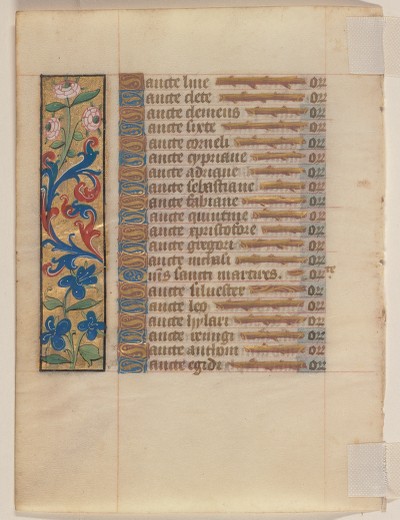 Sancte line or
Sancte clete or
Sancte clemens or
Sancte sixte or
Sancte corneli or
Sancte cypriane or
Sancte adriane or
Sancte sebastiane or
Sancte fabiane or
Sancte quintine or
Sancte xpristofore or
Sancte gregori or
Sancte or
Oms sancti martires. or
Sancte siluester or
Sancte leo or
Sancte hylari or
Sancte remigi or
Sancte anthoni or
Sancte egidi or